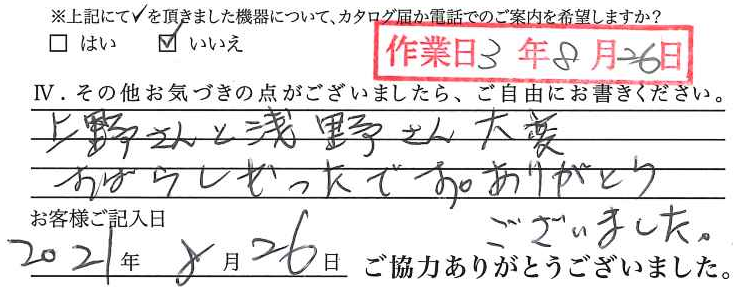 ※上記にて✓を頂きました機器について、カタログ届か電話でのご案内を希望しますか?
□ はい ☑ いいえ
作業日3年8月26日
Ⅳ．その他お気づきの点がございましたら、ご自由にお書きください。
上野さんと浅野さん大変
すばらしかったです。ありがとう
ございました。
お客様ご記入日
2021年8月26日 ご協力ありがとうございました。